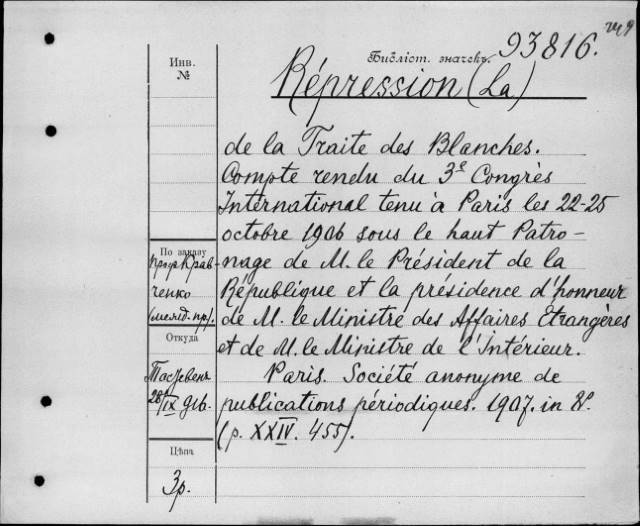 Библіот. значекъ. 93816.
Инв.
№
Répression (La)
de la Traite des Blanches.
Compte rendu du 3e Congrès
International tenu à Paris les 22-25
octobre 1906 sous le haut Patro-
nage de M. le Président de la
République et la présidence d'honneur
de M. le Ministre des Affaires Etrangères
et de M. le Ministre de l'Intérieur.
Paris. Société anonyme de
publications périodiques. 1907. in 8º.
(p. XXIV. 455).
По заказу
проф Крав-
ченко
Откуда
28/IX
Цѣна
3р.